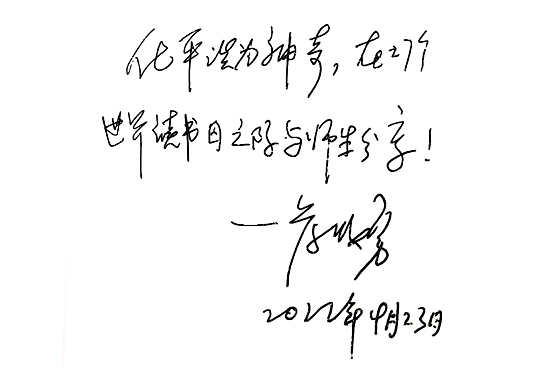 化平淡为神奇，在27个
世界读书日之际与师生分享！
2022年4月23日